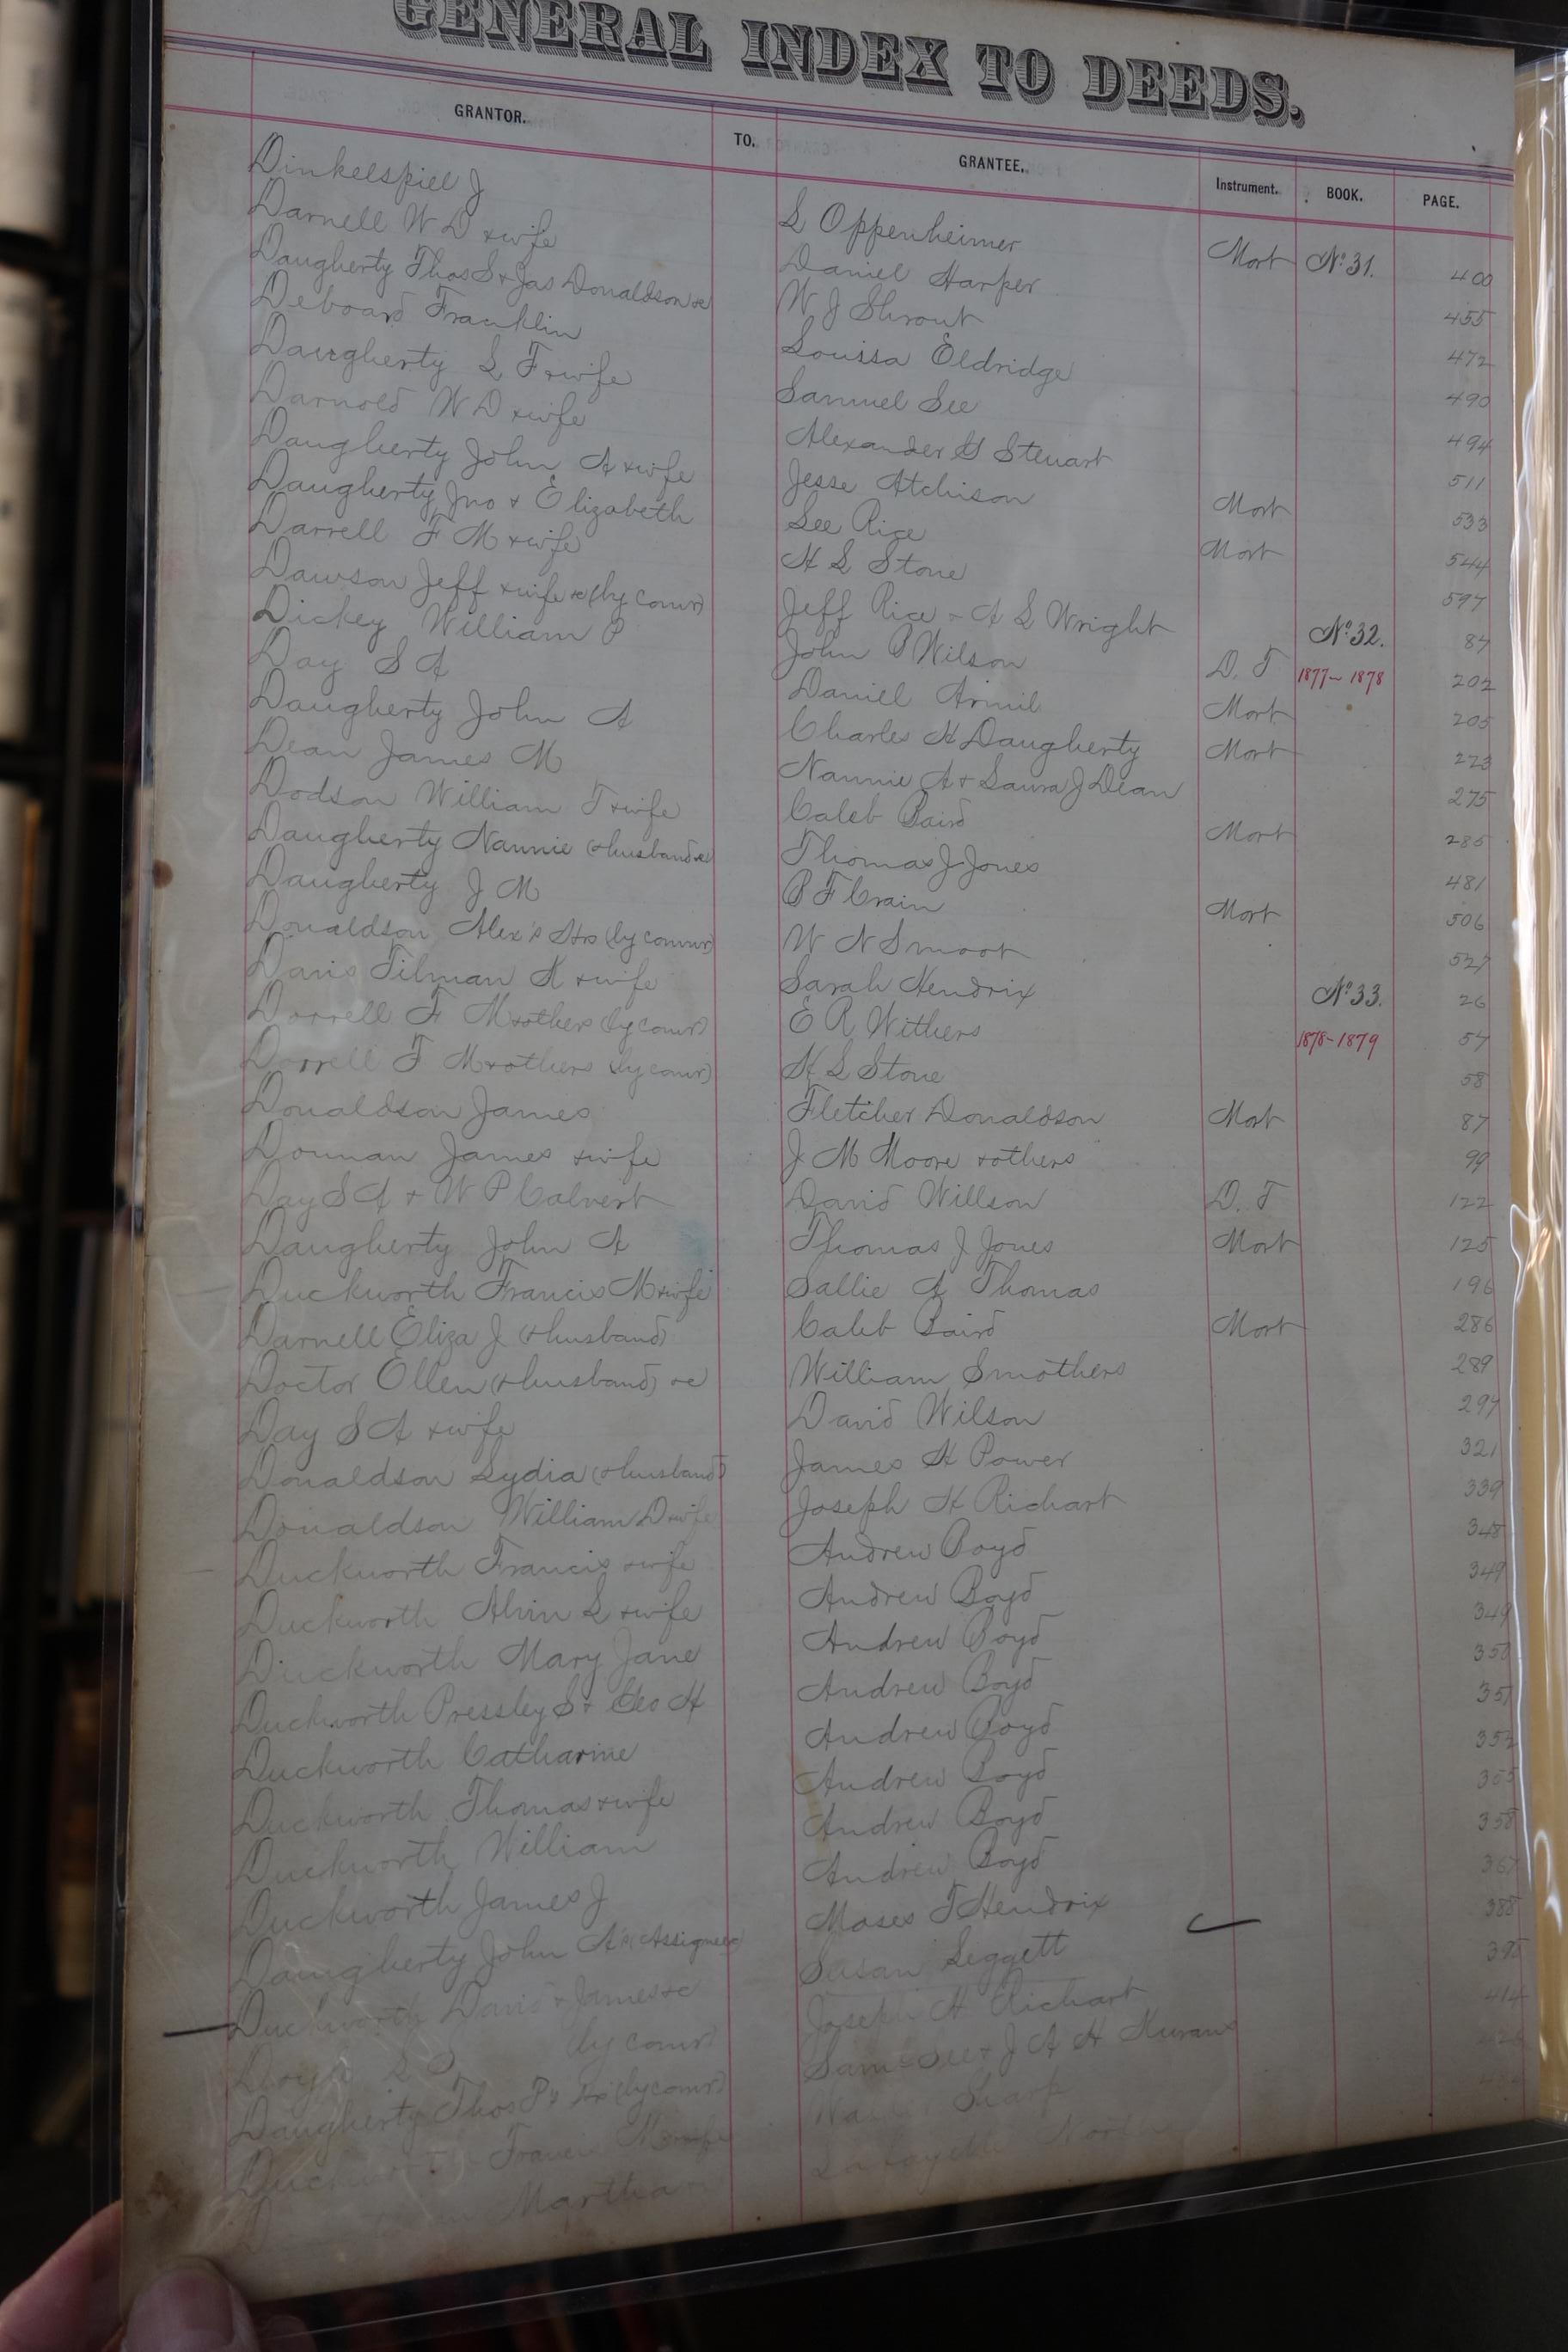 GENERAL INDEX TO DEEDS.
GRANTOR. TO. GRANTEE. Instrument. BOOK. PAGE.
Dinkelspiel J L Oppenheimer Mort No 31. 400
Darnell W D & wife Daniel Harper 455
Daugherty Thos S & Jas Donaldson &c W J Shrout 472
Deboard Franklin Louisa Eldridge 490
Daugherty L F & wife Samuel See 494
Darnold W D & wife Alexander G Steuart 511
Daugherty John A & wife Jesse Atchison Mort 533
Daugherty Jno & Elizabeth Lee Rice Mort 544
Darrell F M & wife H L Stone 597
Dawson Jeff & wife &c (by comr) Jeff Rice & A L Wright No 32. 84
Dickey William P John P Wilson D. T 1877-1878 202
Day S A Daniel Armil Mort 205
Daugherty John A Charles H Daugherty Mort 223
Dean James M Nannie A & Laura J Dean 275
Dodson William T & wife Caleb Baird Mort 285
Daugherty Nannie (& husband &c) Thomas J Jones 481
Daugherty J M B F Crain Mort 506
Donaldson Alex's Hrs (by commr) W N Smoot 527
Davis Tilman H & wife Sarah Hendrix No 33. 26
Dorrell F M & others (by comr) E R Withers 1878-1879 54
Dorrell F M & others (by comr) H L Stone 58
Donaldson James Fletcher Donaldson Mort 87
Dounan James & wife J M Moore & others 99
Day S A & W P Calvert David Willson D. T 122
Daugherty John A Thomas J Jones Mort 125
Duckworth Francis M & wife Sallie A Thomas 196
Darnell Eliza J (& husband) Caleb Baird Mort 286
Doctor Ellen (& husband) &c William Smothers 289
Day S A & wife David Wilson 297
Donaldson Lydia (& husband) James H Power 321
Donaldson William D & wife Joseph H Richart 339
Duckworth Francis & wife Andrew Boyd 348
Duckworth Alvin L & wife Andrew Boyd 349
Duckworth Mary Jane Andrew Boyd 349
Duckworth Pressley S & Geo H Andrew Boyd 350
Duckworth Catharine Andrew Boyd 351
Duckworth Thomas & wife Andrew Boyd 353
Duckworth William Andrew Boyd 355
Duckworth James J Andrew Boyd 358
Daugherty John A's (Assignee) Moses T Hendrix 367
Duckworth David & James &c Susan Leggett 388
by comr) Joseph H Richart 395
Daugherty Thos P's Hrs (by comr) Sam See & J A H 414
Duckworth Francis M & wife Sharp
Martha Lafayette